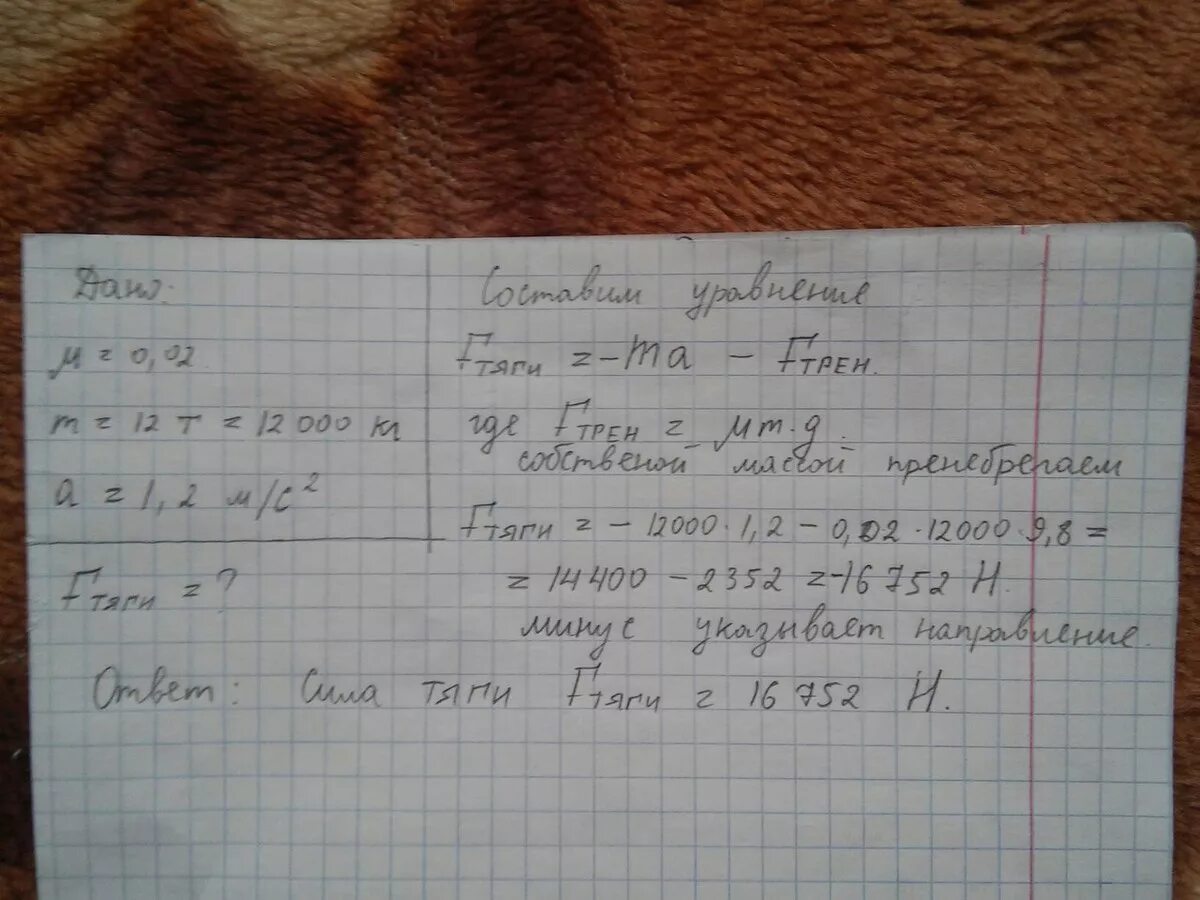 Дано:
μ = 0,02
m = 12 т = 12 000 кг
a = 1,2 м/с²
Fтяги = ?
Составим уравнение
Fтяги = -ma - Fтрен.
где Fтрен = μm·g.
собственой массой пренебрегаем
Fтяги = - 12000·1,2 - 0,02·12000·9,8 =
= 14400 - 2352 = -16 752 Н.
минус указывает направление.
Ответ: Сила тяги Fтяги = 16 752 Н.